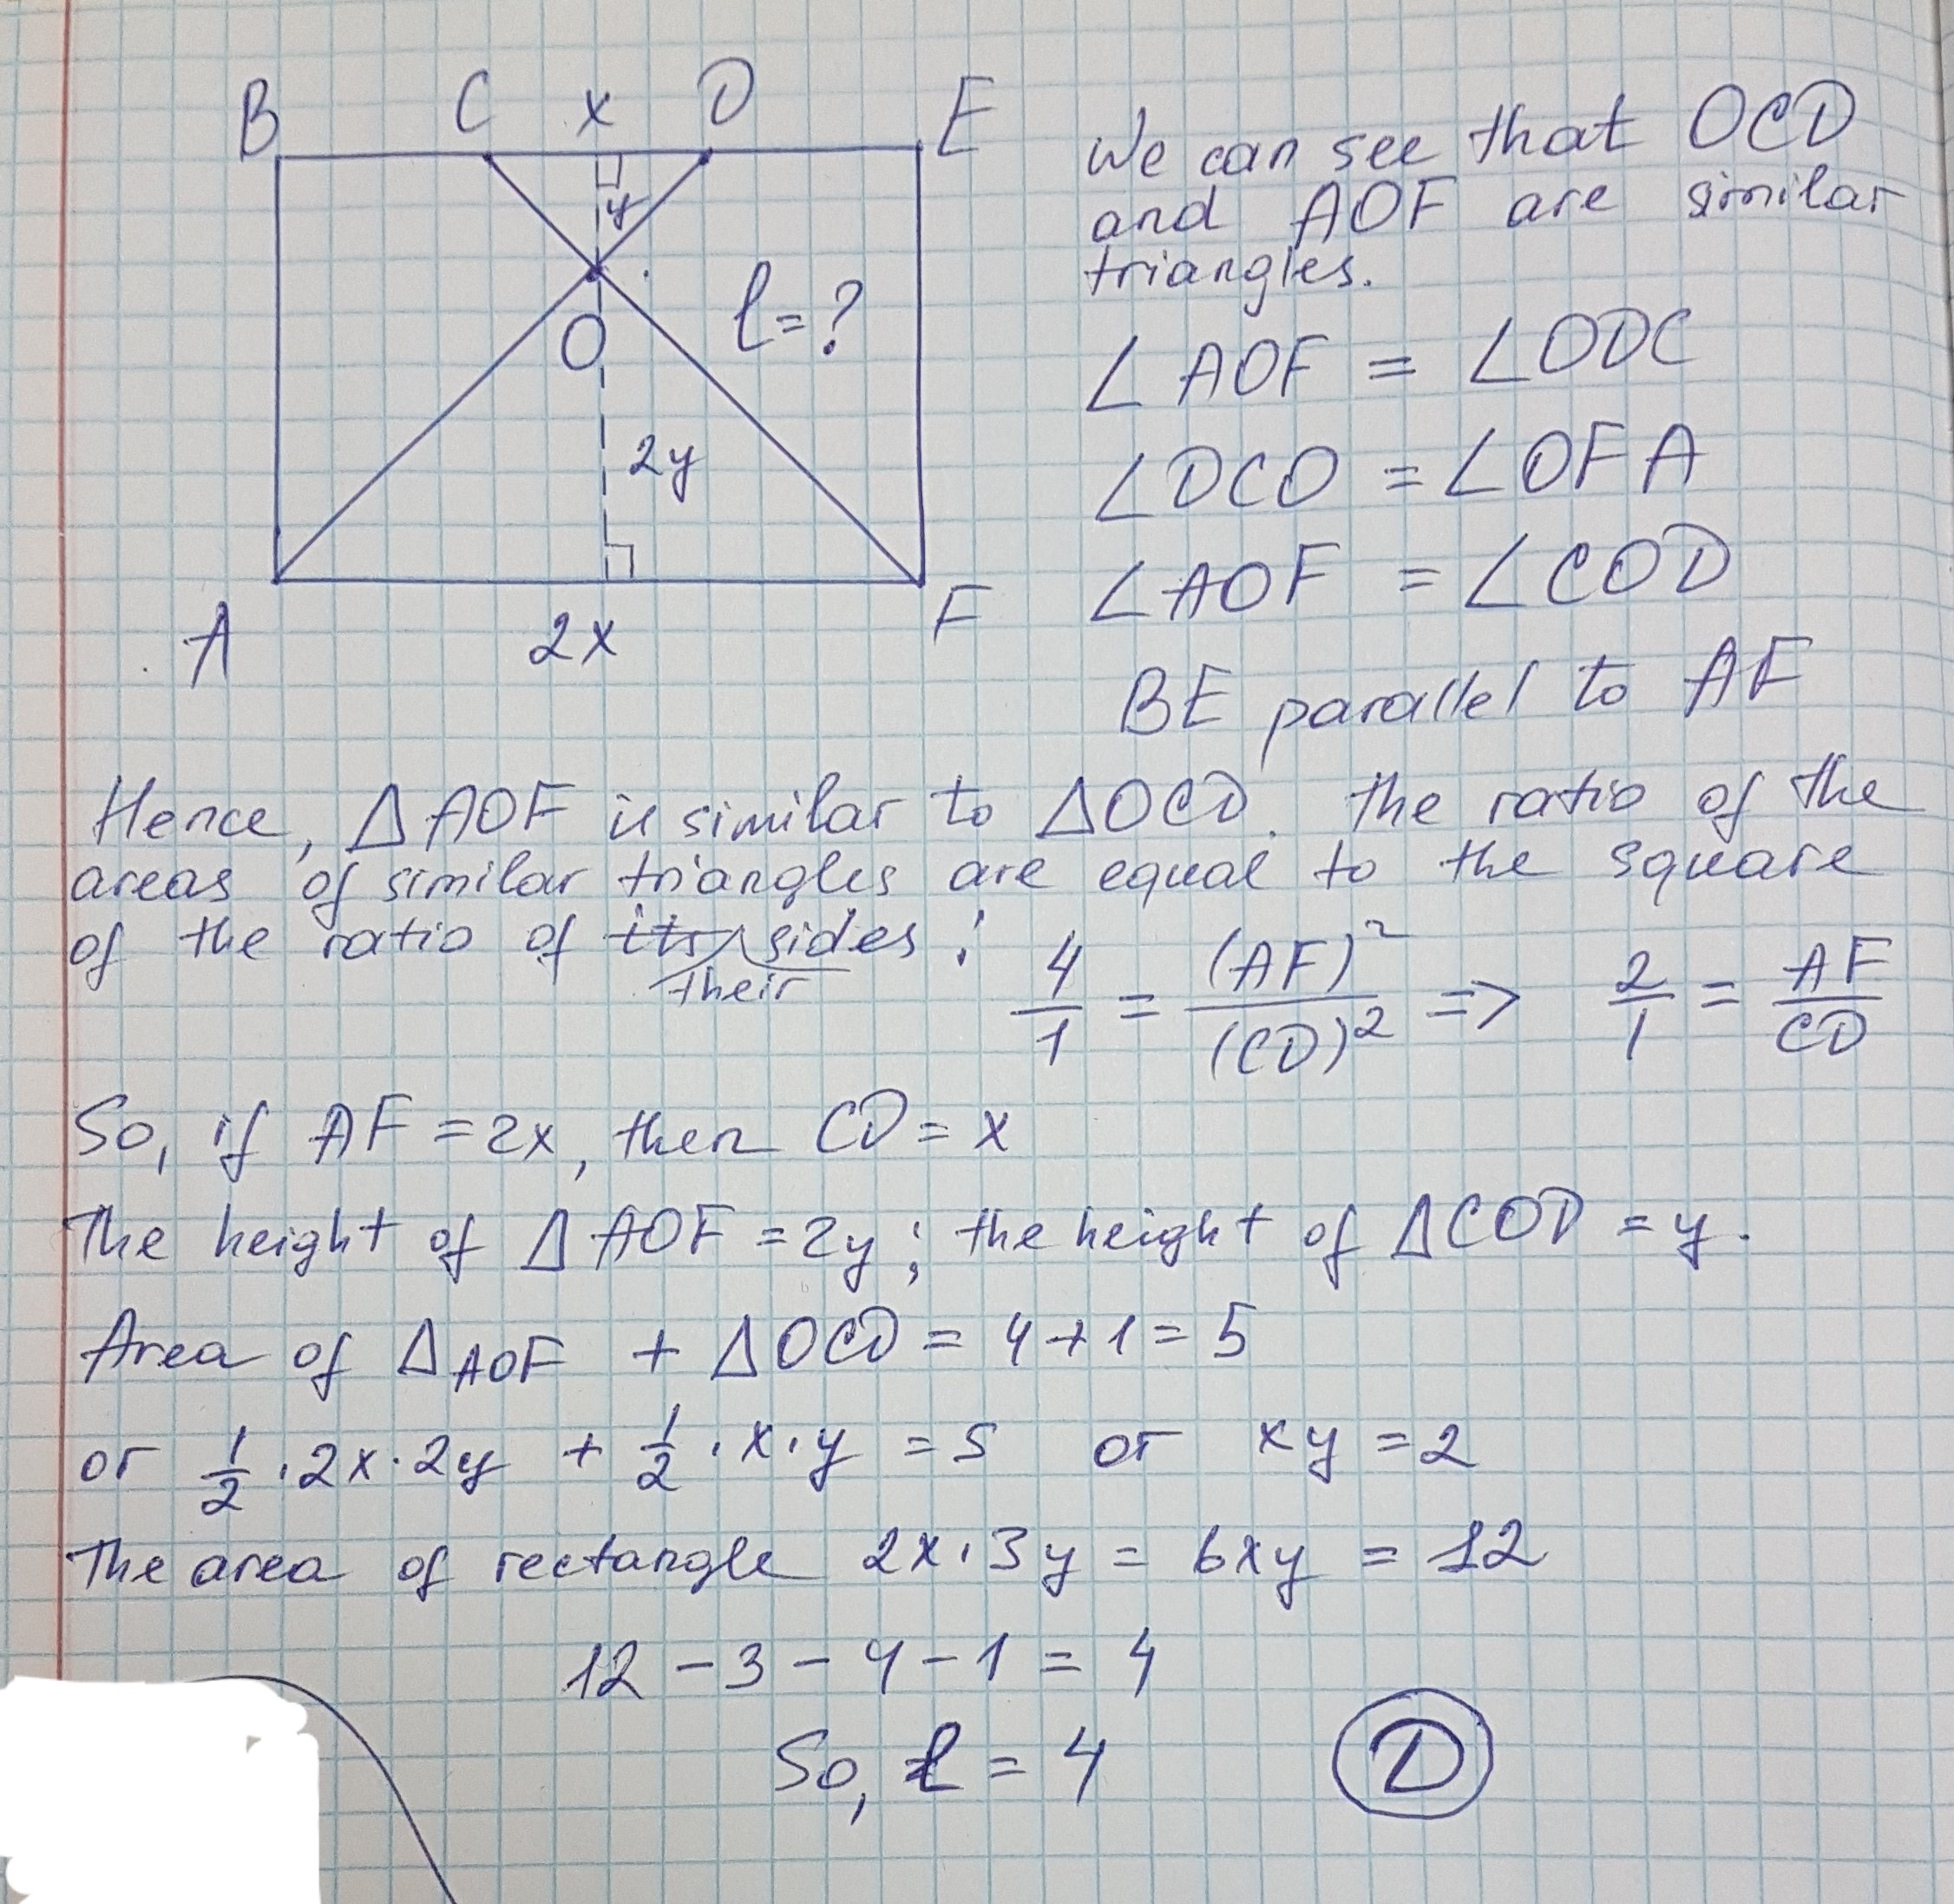 B C x D E
y
O
l = ?
2y
A 2x F
We can see that OCD
and AOF are similar
triangles.
∠AOF = ∠ODC
∠DCO = ∠OFA
∠AOF = ∠COD
BE parallel to AF
Hence, △AOF is similar to △OCD. The ratio of the
areas of similar triangles are equal to the square
of the ratio of its sides :
their
4/1 = (AF)²/(CD)² => 2/1 = AF/CD
So, if AF = 2x, then CD = x
The height of △AOF = 2y; the height of △COD = y.
Area of △AOF + △OCD = 4+1 = 5
or 1/2 · 2x · 2y + 1/2 · x · y = 5 or xy = 2
The area of rectangle 2x · 3y = 6xy = 12
12 - 3 - 4 - 1 = 4
So, l = 4
D